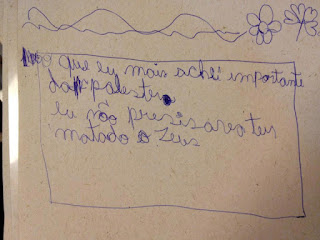 o que eu mais achei importante
da palestra
eu não presisarea ter
matado o Zeus